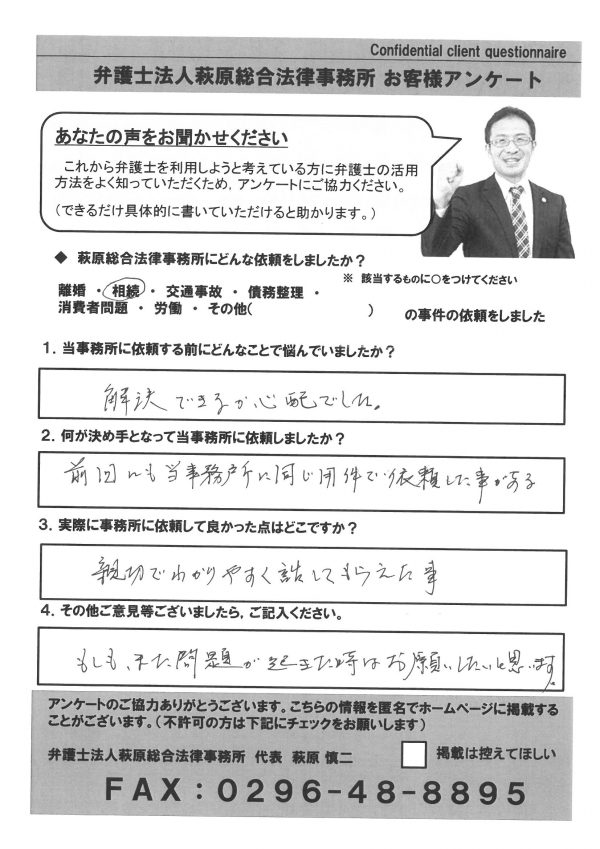 Confidential client questionnaire
弁護士法人萩原総合法律事務所 お客様アンケート
あなたの声をお聞かせください
これから弁護士を利用しようと考えている方に弁護士の活用
方法をよく知っていただくため，アンケートにご協力ください。
（できるだけ具体的に書いていただけると助かります。）
◆ 萩原総合法律事務所にどんな依頼をしましたか？
※ 該当するものに○をつけてください
離婚 ・ 相続 ・ 交通事故 ・ 債務整理 ・
消費者問題 ・ 労働 ・ その他（ ） の事件の依頼をしました
1．当事務所に依頼する前にどんなことで悩んでいましたか？
解決できるか心配でした。
2．何が決め手となって当事務所に依頼しましたか？
前回にも当事務所に同じ用件で依頼した事がある
3．実際に事務所に依頼して良かった点はどこですか？
親切でわかりやすく話してもらえた事
4．その他ご意見等ございましたら，ご記入ください。
もしも、また問題が起きた時はお願いしたいと思います。
アンケートのご協力ありがとうございます。こちらの情報を匿名でホームページに掲載する
ことがございます。（不許可の方は下記にチェックをお願いします）
弁護士法人萩原総合法律事務所 代表 萩原 慎二 掲載は控えてほしい
FAX：0296-48-8895